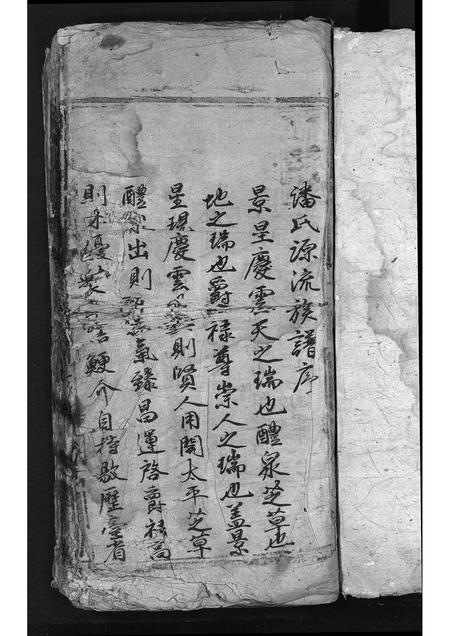 潘氏源流族譜序
景星慶雲天之瑞也醴泉芝草也
地之瑞也爵祿尊崇人之瑞也蓋景
星現慶雲則賢人用開太平芝草
醴泉出則氣臻昌運啓爵祿高
則鯁介自持敭歷臺省